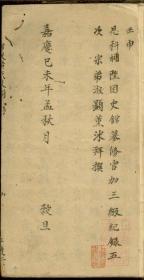 壬申
恩科補陞國史館纂修官加三級紀錄五
次 宗弟淑顯董沐拜撰
嘉慶己未年孟秋月 穀旦